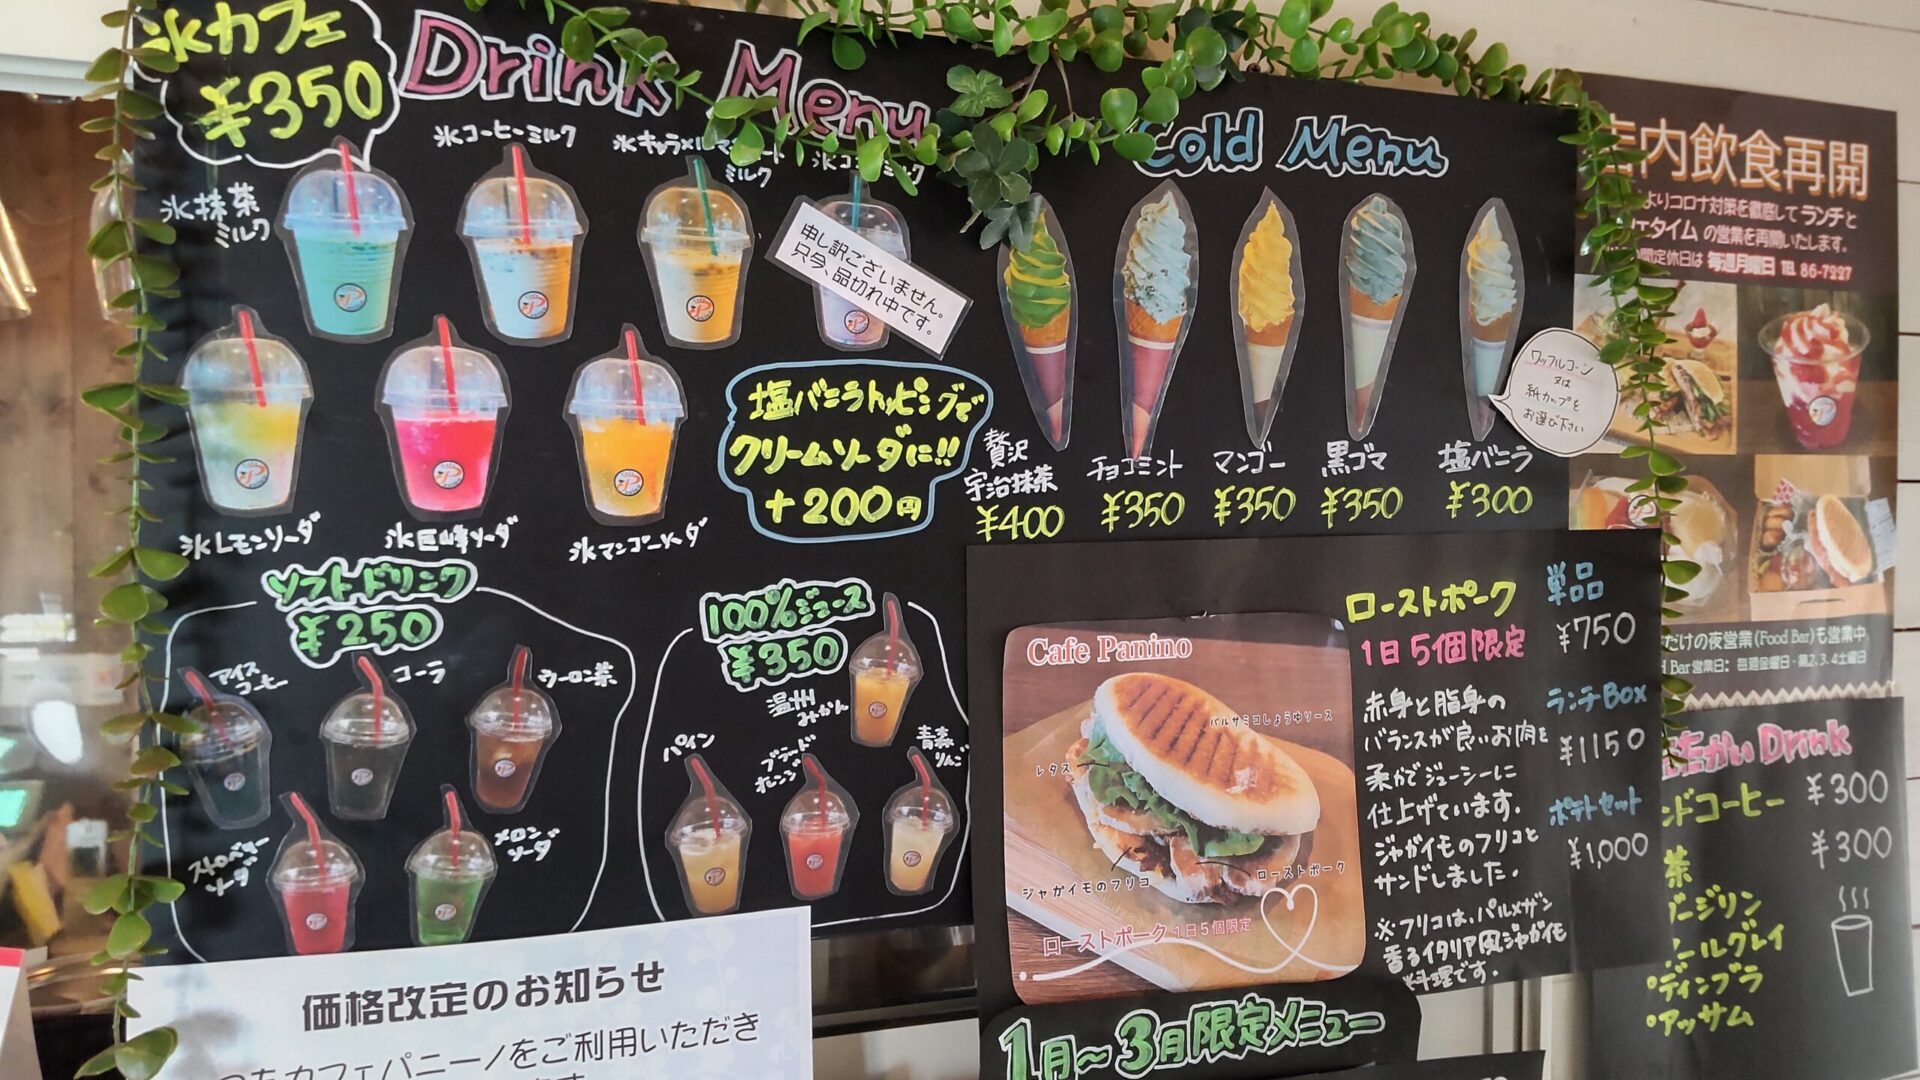 氷カフェ
¥350
Drink Menu
氷抹茶
ミルク
氷コーヒーミルク
氷キャラメル
ミルク
申し訳ございません。
只今、品切れ中です。
氷レモンソーダ
氷巨峰ソーダ
氷マンゴーソーダ
塩バニラトッピングで
クリームソーダに!!
+200円
ソフトドリンク
¥250
アイス
コーヒー
コーラ
ウーロン茶
ストロベリー
ソーダ
メロン
ソーダ
100%ジュース
¥350
温州
みかん
パイン
ブラッド
オレンジ
青森
りんご
Cold Menu
贅沢
宇治抹茶
¥400
チョコミント
¥350
マンゴー
¥350
黒ゴマ
¥350
塩バニラ
¥300
ワッフルコーン
又は
紙カップを
お選び下さい
Cafe Panino
バルサミコしょうゆソース
レタス
ジャガイモのフリコ
ローストポーク
ローストポーク 1日5個限定
ローストポーク
1日5個限定
赤身と脂身の
バランスが良いお肉を
柔かでジューシーに
仕上げています。
ジャガイモのフリコと
サンドしました。
※フリコは、パルメザン
香るイタリア風ジャガイモ
料理です。
単品
¥750
ランチBox
¥1150
ポテトセット
¥1,000
1月~3月限定メニュー
価格改定のお知らせ
カフェパニーノをご利用いただき
店内飲食再開
よりコロナ対策を徹底してランチと
ェタイムの営業を再開いたします。
定休日は 毎週月曜日 TEL 86-7227
だけの夜営業(Food Bar)も営業中
Bar営業日: 毎週金曜日・第2、3、4土曜日
たかい Drink
ンドコーヒー ¥300
茶 ¥300
ージリン
ールグレイ
・ディンブラ
・アッサム